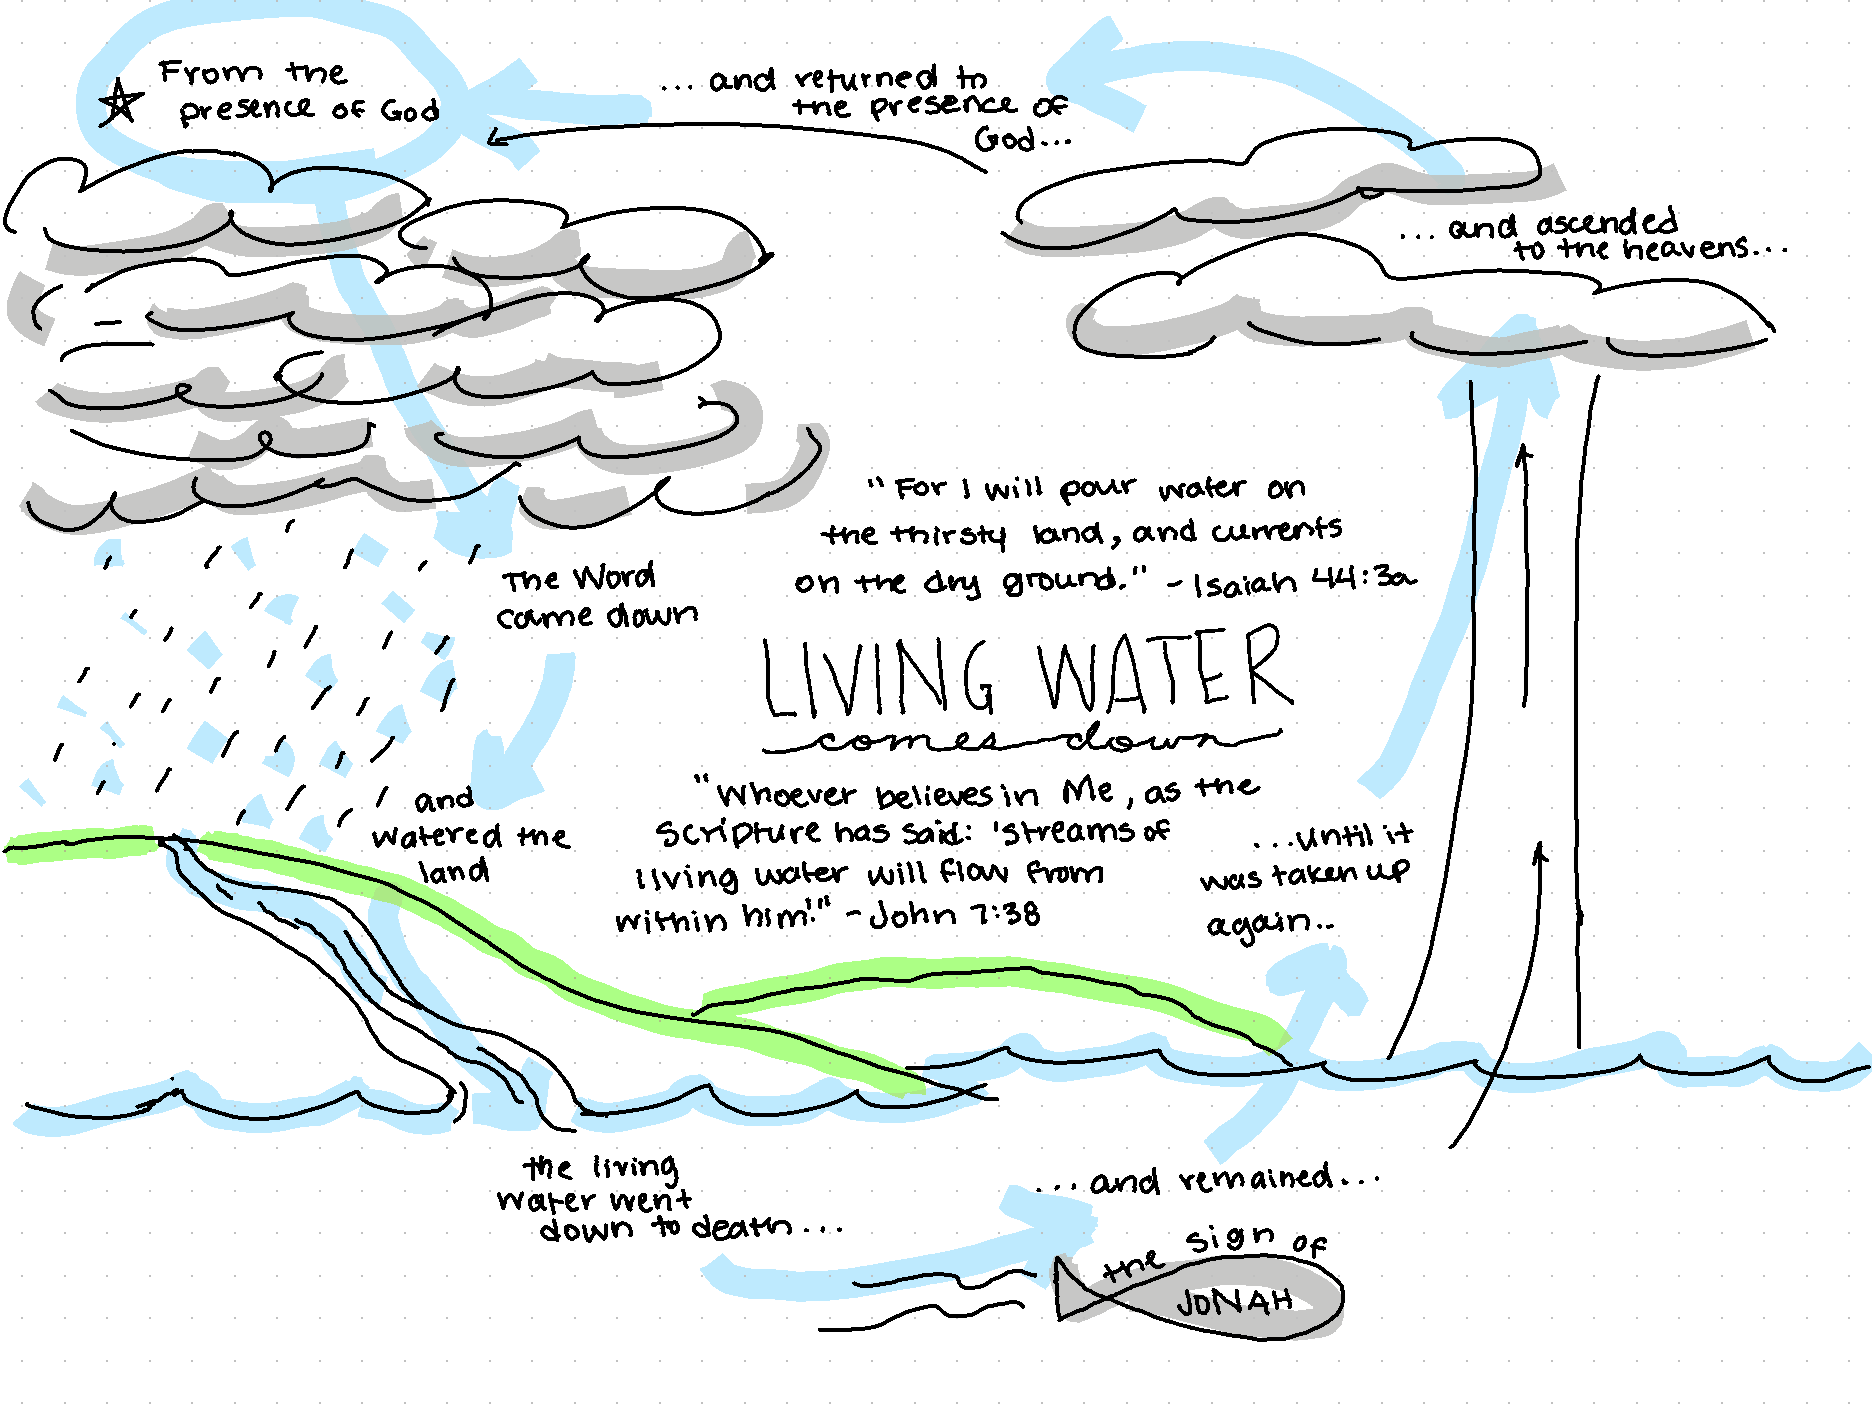 From the
presence of God
... and returned to
the presence of
God...
... and ascended
to the heavens...
The Word
came down
"For I will pour water on
the thirsty land, and currents
on the dry ground." - Isaiah 44:3a
LIVING WATER
comes down
"Whoever believes in Me, as the
Scripture has said: 'streams of
living water will flow from
within him!" - John 7:38
and
watered the
land
...until it
was taken up
again...
the living
water went
down to death...
...and remained...
the sign of
JONAH